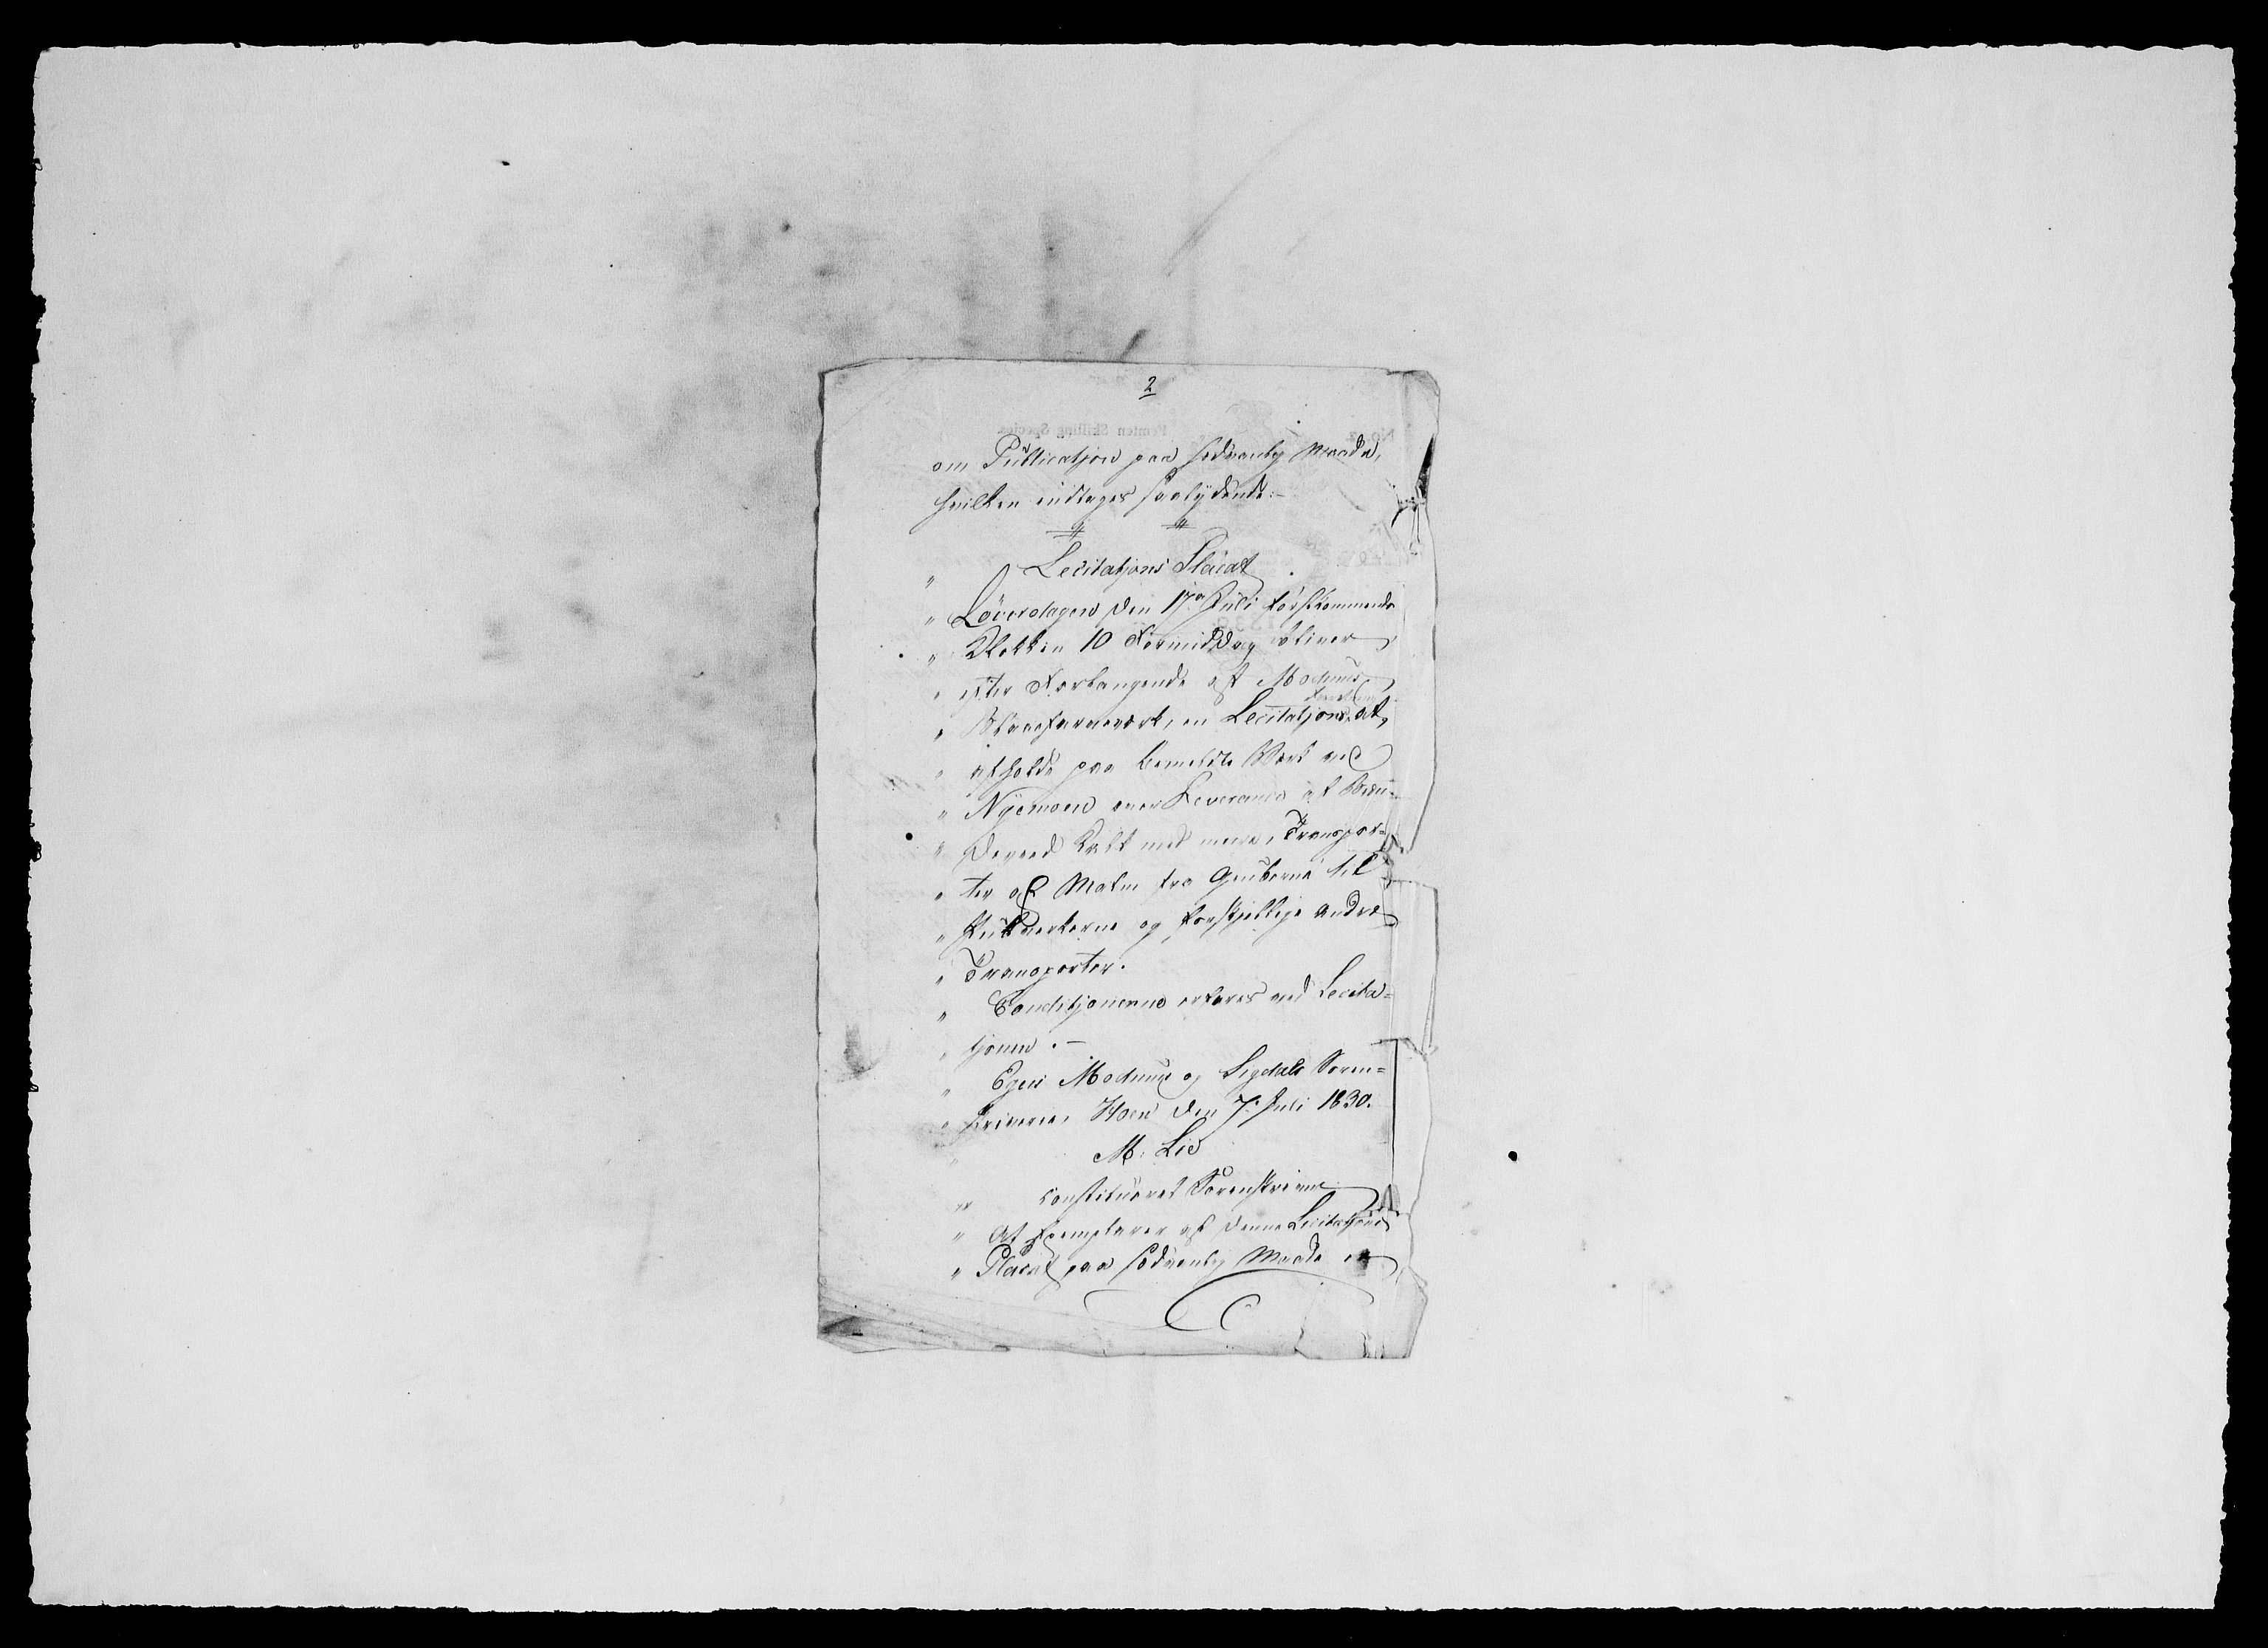 2
om Publicatjon paa sædvanlig Maade,
hvilken indtages saalydende:
" Licitatjons Placat
" Löverdagen den 17de Juli førstkommende
" Klokken 10 Formiddag bliver
" efter Forlangende af Modums
" Blaafarveværk, en Licitatjons at
" afholde paa bemeldte Værk ved
" Nÿemoen over Leverance af Bræn-
" deveed Kalk med mere, Transpor-
" ter af Malm fra Gruberne til
" Pukverkerne og forskjellige andre
" Transporter.
" Conditjonerne erfares ved Licita=
" tjonen. -
" Egers Modums og Sigdals Soren=
" skriverie, Hoen den 7. Juli 1830.
" M. Lie
" constitueret Sorenskriver
" At Exemplarer af denne Licitatjons
" Placat paa sædvanlig Maade er